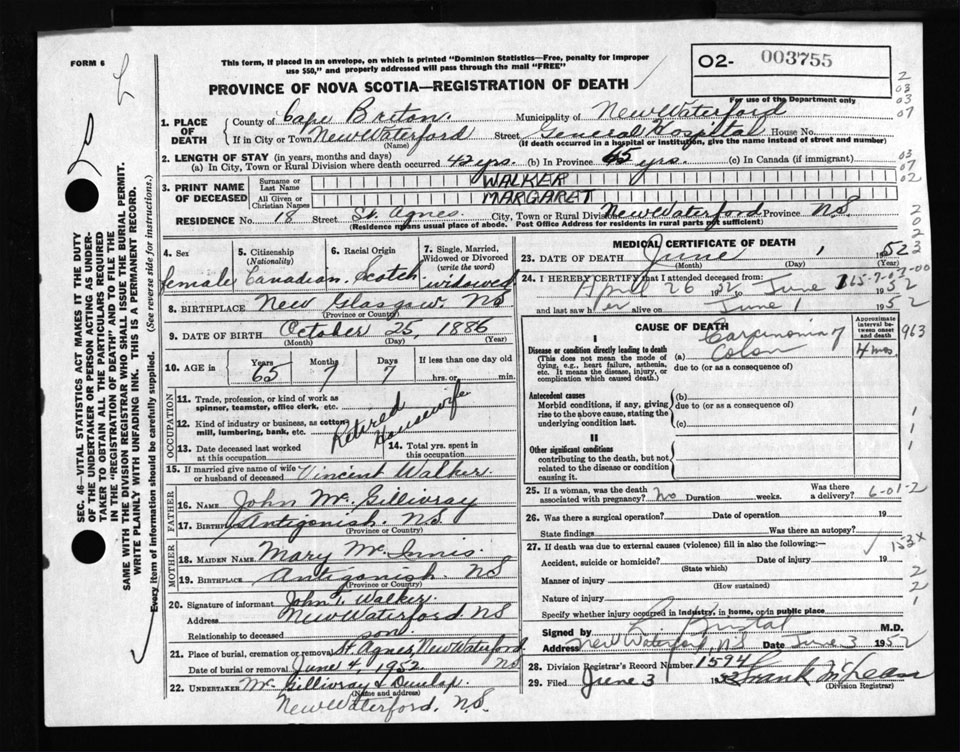 FORM 6
This form, if placed in an envelope, on which is printed "Dominion Statistics—Free, penalty for improper
use $50," and properly addressed will pass through the mail "FREE"
02- 003755
PROVINCE OF NOVA SCOTIA—REGISTRATION OF DEATH
For use of the Department only
1. PLACE OF DEATH
County of Cape Breton. Municipality of New Waterford
If in City or Town New Waterford Street General Hospital House No.
(Name) (If death occurred in a hospital or institution, give the name instead of street and number)
2. LENGTH OF STAY (in years, months and days)
(a) In City, Town or Rural Division where death occurred 42 yrs. (b) In Province 65 yrs. (c) In Canada (if immigrant)
3. PRINT NAME OF DECEASED
Surname or Last Name WALKER
All Given or Christian Names MARGARET
RESIDENCE No. 18 Street St. Agnes. City, Town or Rural Division New Waterford Province N.S.
(Residence means usual place of abode. Post Office Address for residents in rural parts not sufficient)
4. Sex female
5. Citizenship (Nationality) Canadian.
6. Racial Origin Scotch
7. Single, Married, Widowed or Divorced (write the word) widowed
8. BIRTHPLACE New Glasgow, NS
(Province or Country)
9. DATE OF BIRTH October 25, 1886
(Month) (Day) (Year)
10. AGE in Years 65 Months 7 Days 7 If less than one day old hrs. or min.
OCCUPATION
11. Trade, profession, or kind of work as spinner, teamster, office clerk, etc.
12. Kind of industry or business, as cotton mill, lumbering, bank, etc.
Retired Housewife
13. Date deceased last worked at this occupation
14. Total yrs. spent in this occupation
15. If married give name of wife or husband of deceased Vincent Walker.
FATHER
16. Name John Mc Gillivray
17. Birthplace Antigonish. NS
(Province or Country)
MOTHER
18. Maiden Name Mary Mc Innis.
19. Birthplace Antigonish. NS
(Province or Country)
20. Signature of informant John V. Walker.
Address New Waterford NS
Relationship to deceased son.
21. Place of burial, cremation or removal St. Agnes, New Waterford NS
Date of burial or removal June 4, 1952.
22. UNDERTAKER Mc Gillivray & Dunlap.
(Name and address)
New Waterford, N.S.
MEDICAL CERTIFICATE OF DEATH
23. DATE OF DEATH June 1 1952
(Month) (Day) (Year)
24. I HEREBY CERTIFY that I attended deceased from:
April 26 1952 to June 1 1952
and last saw her alive on June 1 1952
CAUSE OF DEATH
Approximate interval between onset and death
I
Disease or condition directly leading to death (a) Carcinoma of Colon 4 mos.
(This does not mean the mode of dying, e.g., heart failure, asthenia, etc. It means the disease, injury, or complication which caused death.)
due to (or as a consequence of)
Antecedent causes
Morbid conditions, if any, giving rise to the above cause, stating the underlying condition last.
(b)
due to (or as a consequence of)
(c)
II
Other significant conditions
contributing to the death, but not related to the disease or condition causing it.
25. If a woman, was the death associated with pregnancy? No Duration weeks. Was there a delivery?
26. Was there a surgical operation? Date of operation 19
State findings Was there an autopsy?
27. If death was due to external causes (violence) fill in also the following:—
Accident, suicide or homicide? Date of injury 19
(State which)
Manner of injury
(How sustained)
Nature of injury
Specify whether injury occurred in industry, in home, or in public place
Signed by M.D.
Address New Waterford, N.S. Date June 3 1952
28. Division Registrar's Record Number 1594
29. Filed June 3 1952 Frank McLean
(Division Registrar)
SEC. 46—VITAL STATISTICS ACT MAKES IT THE DUTY
OF THE UNDERTAKER OR PERSON ACTING AS UNDER-
TAKER TO OBTAIN ALL THE PARTICULARS REQUIRED
IN THE "REGISTRATION OF DEATH" AND TO FILE THE
SAME WITH THE DIVISION REGISTRAR WHO SHALL ISSUE THE BURIAL PERMIT.
WRITE PLAINLY WITH UNFADING INK. THIS IS A PERMANENT RECORD.
Every item of information should be carefully supplied. (See reverse side for instructions.)
2
03
03
07
03
07
02
2
0
2
3
963
1
1
1
6-01-2
153X
2
2
1